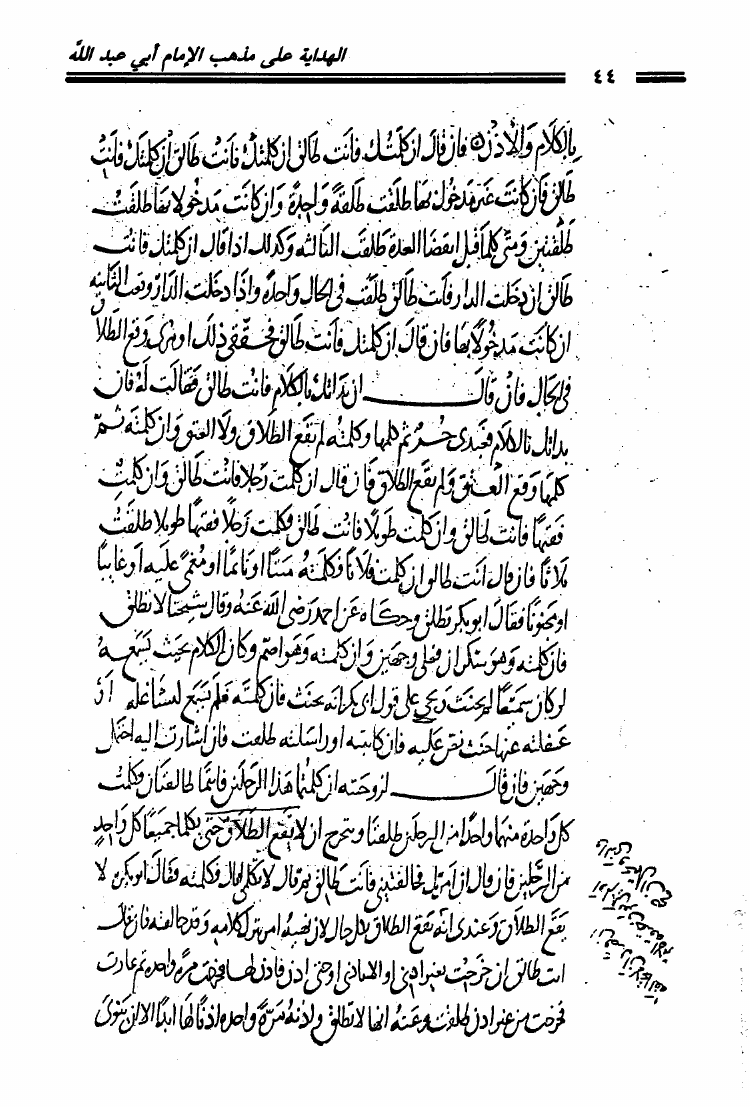 الهداية على مذهب الإمام أبي عبد الله
٤٤
بالكلام والاذن فان قال ان كلمتك فانت طالق ان كلمتك فانت طالق ان كلمتك فانت
طالق فان كانت غير مدخول بها طلقت طلقة واحدة وان كانت مدخولا بها طلقت
طلقتين ومتى كلمها قبل انقضا العدة طلقت الثالثه وكذلك اذا قال ان كلمتك فانت
طالق ان دخلت الدار فانت طالق طلقت في الحال واحدة واذا دخلت الدار وقعت الثانيه
ان كانت مدخولا بها فان قال ان كلمتك فانت طالق فتحققي ذلك او مري وقع الطلاق
في الحال فان قال ان بداتك بالكلام فانت طالق فقالت له فان
بداتك بالكلام فعبدي حر ثم كلمها وكلمته لم يقع الطلاق ولا العتق وان كلمته ثم
كلمها وقع العتق ولم يقع الطلاق فان قال ان كلمت رجلا فانت طالق وان كلمت
فقيها فانت طالق وان كلمت طويلا فانت طالق فكلمت رجلا فقيها طويلا طلقت
ثلاثا فان قال انت طالق ان كلمت فلانا فكلمته ميتا او نائما او مغمى عليه او غايبا
او مجنونا فقال ابو بكر تطلق وحكاه عن احمد رضي الله عنه وقال شيخنا لا تطلق
فان كلمته وهو سكران فعلى وجهين وان كلمته وهو اصم وكان الكلام بحيث يسمعه
لو كان سميعا لم يحنث ويجي على قول ابي بكر انه يحنث فان كلمته فلم يسمع لتشاغله او
غفلته عنها حنث نص عليه فان كاتبته او راسلته طلقت فان اشارت اليه احتمل
وجهين فان قال لزوجتيه ان كلمتما هذا الرجلين فانتما طالقتان فكلمت
كل واحدة منهما واحدا من الرجلين طلقتا ويتخرج ان لا يقع الطلاق حتى يكلما جميعا كل واحد
من الرجلين فان قال ان امرتك فخالفتيني فانت طالق ثم قال لا تكلمي اباك فكلمته فقال ابو بكر لا
يقع الطلاق وعندي انه يقع الطلاق بكل حال لان نهيه امر بترك كلامه وقد خالفته فان قال
انت طالق ان خرجت بغير اذني او الا باذني او حتى اذن فاذن لها فخرجت مرة واحده ثم عادت
فخرجت من غير اذن طلقت وعنه انها لا تطلق واذنه مرة واحده اذنا لها ابدا الا ان ينوي